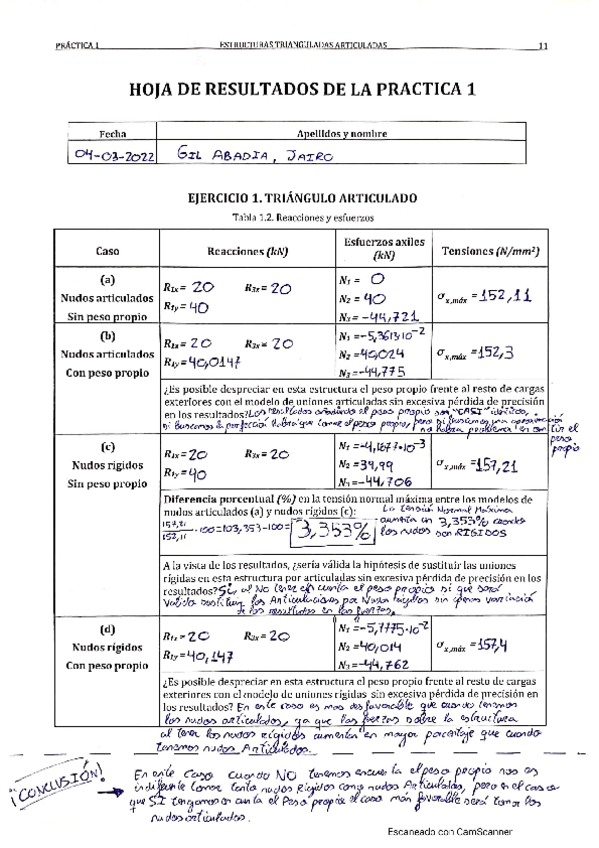 PRÁCTICA 1 ESTRUCTURAS TRIANGULADAS ARTICULADAS 11
HOJA DE RESULTADOS DE LA PRACTICA 1
Fecha Apellidos y nombre
04-03-2022 GIL ABADIA, JAIRO
EJERCICIO 1. TRIÁNGULO ARTICULADO
Tabla 1.2. Reacciones y esfuerzos
Caso Reacciones (kN) Esfuerzos axiles (kN) Tensiones (N/mm²)
(a)
Nudos articulados
Sin peso propio
R1x = 20 R3x = 20
R1y = 40
N1 = 0
N2 = 40
N3 = -44,721
σx,máx = 152,11
(b)
Nudos articulados
Con peso propio
R1x = 20 R3x = 20
R1y = 40,0147
N1 = -5,3613·10⁻²
N2 = 40,024
N3 = -44,775
σx,máx = 152,3
¿Es posible despreciar en esta estructura el peso propio frente al resto de cargas
exteriores con el modelo de uniones articuladas sin excesiva pérdida de precisión
en los resultados? Los resultados añadiendo el peso propio son "CASI" idénticos,
si buscamos la perfección habra que tomar el peso propio, pero si buscamos una aproximación
no habra problema en omitir el
peso
propio
(c)
Nudos rígidos
Sin peso propio
R1x = 20 R3x = 20
R1y = 40
N1 = -4,1677·10⁻³
N2 = 39,99
N3 = -44,706
σx,máx = 157,21
Diferencia porcentual (%) en la tensión normal máxima entre los modelos de
nudos articulados (a) y nudos rígidos (c):
157,21/152,11 ·100=103,353-100= 3,353%
La tensión Normal Máxima
aumenta un 3,353% cuando
los nudos son RIGIDOS
A la vista de los resultados, ¿sería válida la hipótesis de sustituir las uniones
rígidas en esta estructura por articuladas sin excesiva pérdida de precisión en los
resultados? Si, al No tener en cuenta el peso propio si que será
valido sustituir las Articulaciones por Nudos rigidos sin apenas variación
de los resultados en las fuerzas.
(d)
Nudos rígidos
Con peso propio
R1x = 20 R3x = 20
R1y = 40,147
N1 = -5,7775·10⁻²
N2 = 40,014
N3 = -44,762
σx,máx = 157,4
¿Es posible despreciar en esta estructura el peso propio frente al resto de cargas
exteriores con el modelo de uniones rígidas sin excesiva pérdida de precisión en
los resultados? En este caso es mas desfavorable que cuando tenemos
los nudos articulados, ya que las fuerzas sobre la estructura
al tener los nudos rígidos aumentan en mayor porcentaje que cuando
tenemos nudos Articulados.
¡CONCLUSIÓN!
En este Caso cuando NO tenemos en cuenta el peso propio nos es
indiferente tomar tanto nudos Rígidos como nudos Articulados, pero en el caso de
que SI tengamos en cuenta el Peso propio el caso más favorable será tomar los
nudos articulados.
Escaneado con CamScanner